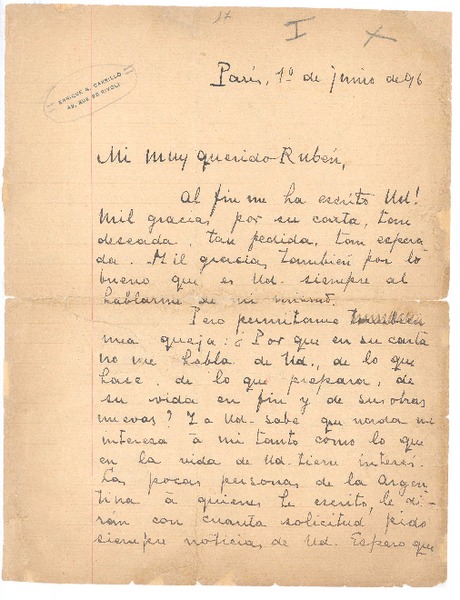 17
I X
París, 1º de junio de 96
ENRIQUE G. CARRILLO
RUE DE RIVOLI
Mi muy querido Rubén,
Al fin me ha escrito Ud!
Mil gracias por su carta, tan
deseada, tan pedida, tan espera
da. Mil gracias, también por lo
bueno que es Ud. siempre al
hablarme de mi
Pero permitame
una queja: ¿Por que en su carta
no me habla de Ud., de lo que
hace, de lo que prepara, de
su vida en fin y de sus obras
nuevas? Ya Ud. sabe que nada me
interesa à mi tanto como lo que
en la vida de Ud. tiene interés.
Las pocas personas de la Argen
tina à quienes he escrito, le di-
rán con cuanta solicitud pido
siempre noticias de Ud. Espero que